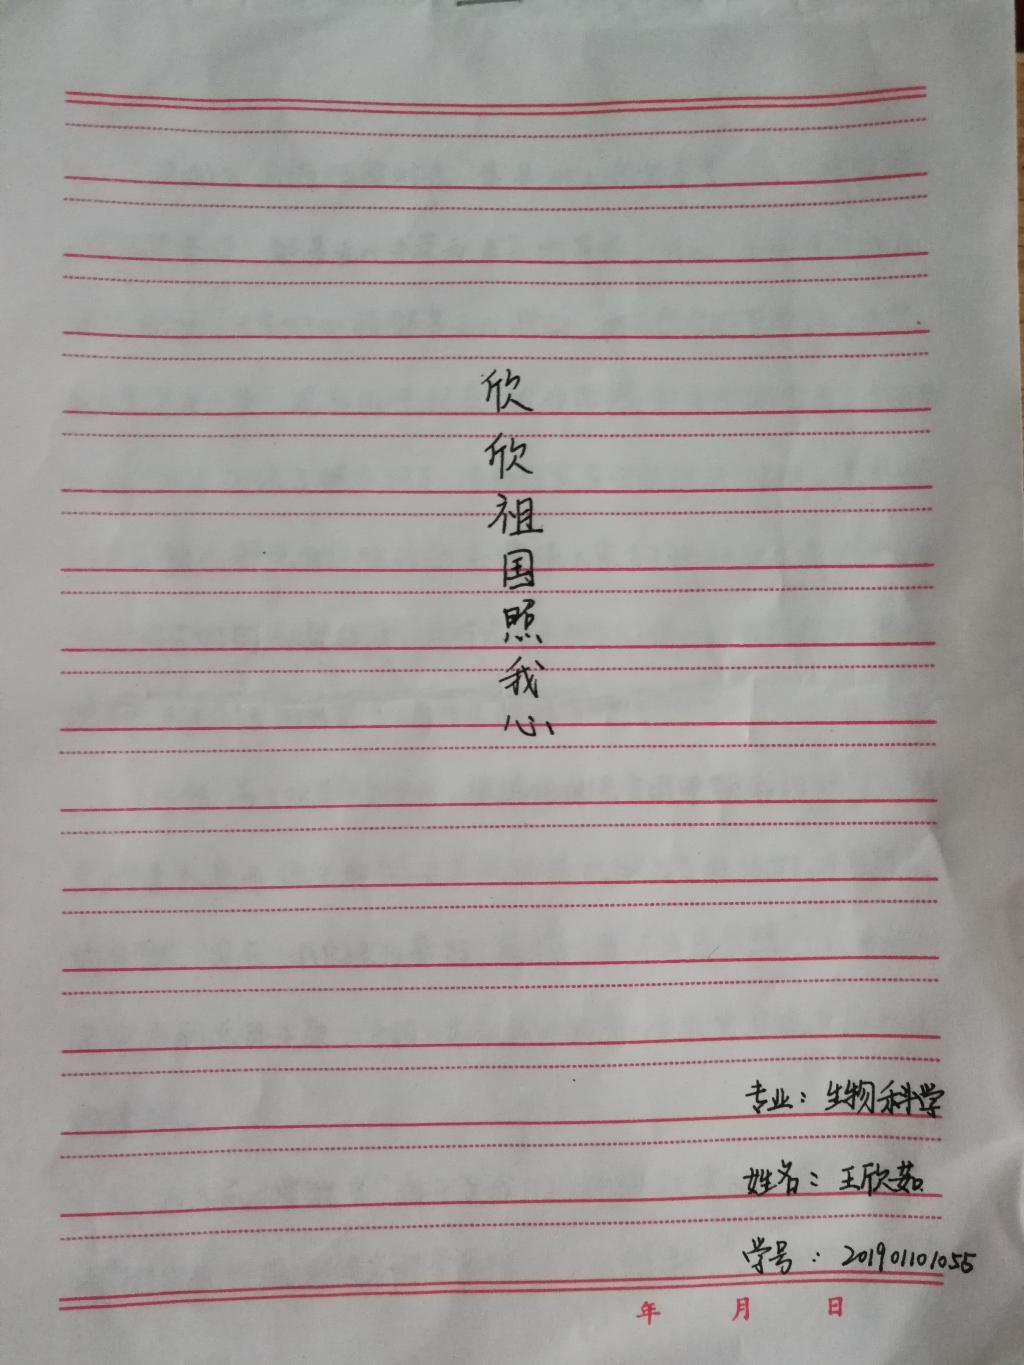 欣欣祖国照我心
专业：生物科学
姓名：王欣茹
学号：201901101055
年 月 日